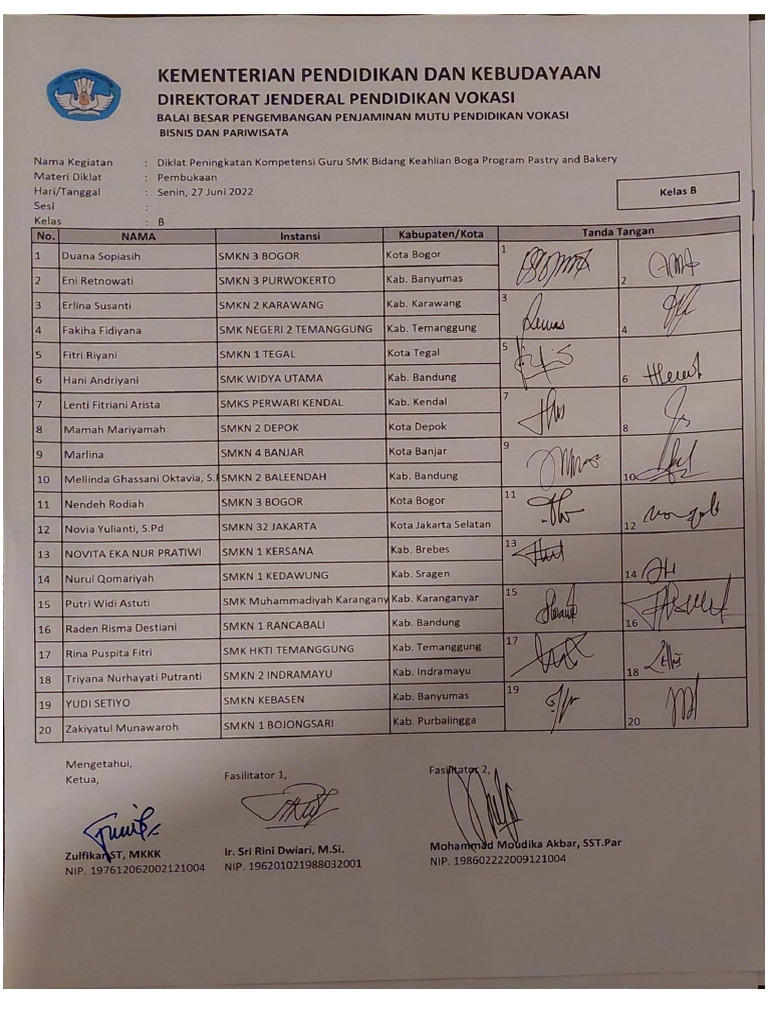 KEMENTERIAN PENDIDIKAN DAN KEBUDAYAAN
DIREKTORAT JENDERAL PENDIDIKAN VOKASI
BALAI BESAR PENGEMBANGAN PENJAMINAN MUTU PENDIDIKAN VOKASI
BISNIS DAN PARIWISATA
Nama Kegiatan : Diklat Peningkatan Kompetensi Guru SMK Bidang Keahlian Boga Program Pastry and Bakery
Materi Diklat : Pembukaan
Hari/Tanggal : Senin, 27 Juni 2022
Sesi :
Kelas : B
Kelas B
No. NAMA Instansi Kabupaten/Kota Tanda Tangan
1 Duana Sopiasih SMKN 3 BOGOR Kota Bogor 1
2 Eni Retnowati SMKN 3 PURWOKERTO Kab. Banyumas 2
3 Erlina Susanti SMKN 2 KARAWANG Kab. Karawang 3
4 Fakiha Fidiyana SMK NEGERI 2 TEMANGGUNG Kab. Temanggung 4
5 Fitri Riyani SMKN 1 TEGAL Kota Tegal 5
6 Hani Andriyani SMK WIDYA UTAMA Kab. Bandung 6
7 Lenti Fitriani Arista SMKS PERWARI KENDAL Kab. Kendal 7
8 Mamah Mariyamah SMKN 2 DEPOK Kota Depok 8
9 Marlina SMKN 4 BANJAR Kota Banjar 9
10 Mellinda Ghassani Oktavia, S.P SMKN 2 BALEENDAH Kab. Bandung 10
11 Nendeh Rodiah SMKN 3 BOGOR Kota Bogor 11
12 Novia Yulianti, S.Pd SMKN 32 JAKARTA Kota Jakarta Selatan 12
13 NOVITA EKA NUR PRATIWI SMKN 1 KERSANA Kab. Brebes 13
14 Nurul Qomariyah SMKN 1 KEDAWUNG Kab. Sragen 14
15 Putri Widi Astuti SMK Muhammadiyah Karangany Kab. Karanganyar 15
16 Raden Risma Destiani SMKN 1 RANCABALI Kab. Bandung 16
17 Rina Puspita Fitri SMK HKTI TEMANGGUNG Kab. Temanggung 17
18 Triyana Nurhayati Putranti SMKN 2 INDRAMAYU Kab. Indramayu 18
19 YUDI SETIYO SMKN KEBASEN Kab. Banyumas 19
20 Zakiyatul Munawaroh SMKN 1 BOJONGSARI Kab. Purbalingga 20
Mengetahui,
Ketua, Fasilitator 1, Fasilitator 2,
Zulfikar ST, MKKK Ir. Sri Rini Dwiari, M.Si. Mohammad Moudika Akbar, SST.Par
NIP. 197612062002121004 NIP. 196201021988032001 NIP. 198602222009121004